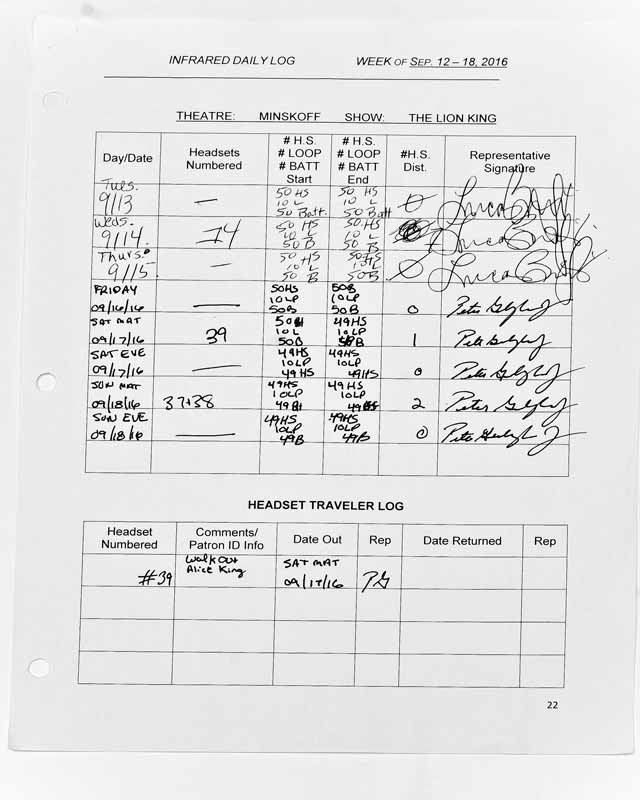 INFRARED DAILY LOG WEEK OF SEP. 12 – 18, 2016
THEATRE: MINSKOFF SHOW: THE LION KING
Day/Date
Headsets Numbered
# H.S. # LOOP # BATT Start
# H.S. # LOOP # BATT End
#H.S. Dist.
Representative Signature
Tues. 9/13 — 50 HS 10 L 50 Batt. 50 HS 10 L 50 Batt
Weds. 9/14. 50 HS 10 L 50 B 50 HS 10 L 50 B
Thurs. 9/15 — 50 HS 10 L 50 B 50 HS 10 L 50 B
FRIDAY 09/16/16 — 50HS 10LP 50B 50B 10LP 50B 0
SAT MAT 09/17/16 39 10L 50B 49HS 10LP 1
SAT EVE 09/17/16 — 49HS 10LP 49HS 49HS 10LP 49HS 0
SUN MAT 09/18/16 37+38 49HS 10LP 49HS 10LP 2
SUN EVE 09/18/16 — 49HS 10LP 49B 49HS 10LP 49B 0
HEADSET TRAVELER LOG
Headset Numbered
Comments/ Patron ID Info
Date Out
Rep
Date Returned
Rep
#39 Walk Out Alice King SAT MAT 09/17/16 PG
22